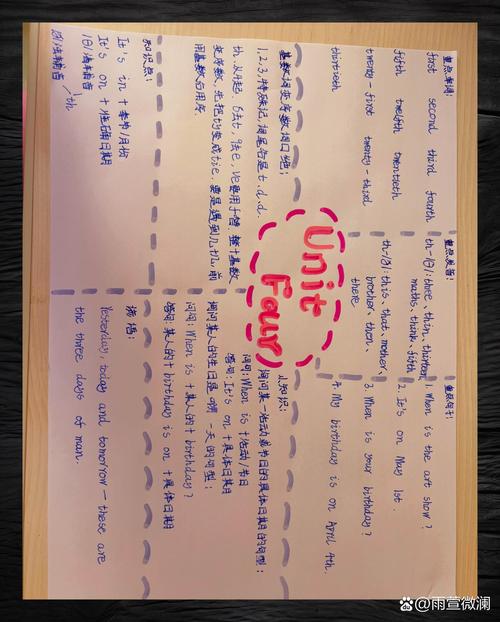 重点单词:
first second third fourth
fifth twelfth twentieth
twenty-first twenty-third
thirtieth
重点发音:
th-/θ/: three, thin, thirteen,
maths, think, fifth
th-/ð/: this, that, mother,
brother, then,
there
重点句子:
1. When is the art show?
2. It's on May 1st.
3. When is your birthday?
4. My birthday is on April 4th.
Unit
Four
基数词变序数词口诀:
1,2,3,特殊记,词尾各是t.d.d.
th.从4起, 8去t, 9去e, ve要用f替. 整十基数
变序数,先把ty变成tie. 要是遇到几十几,前
用基数后用序.
知识点:
It's in + 季节/月份
It's on + 具体日期
/θ/清辅音
/ð/浊辅音
th
知识:
询问某一活动或节日的具体日期的句型:
问句:When is + 活动/节日
答句:It's on + 具体日期
询问某人的生日是哪一天的句型:
问句:When is + 某人的 + birthday?
答句:某人的 + birthday is on + 具体日期
谚语:
Yesterday, today and tomorrow — these are
the three days of man.
@雨萱微澜